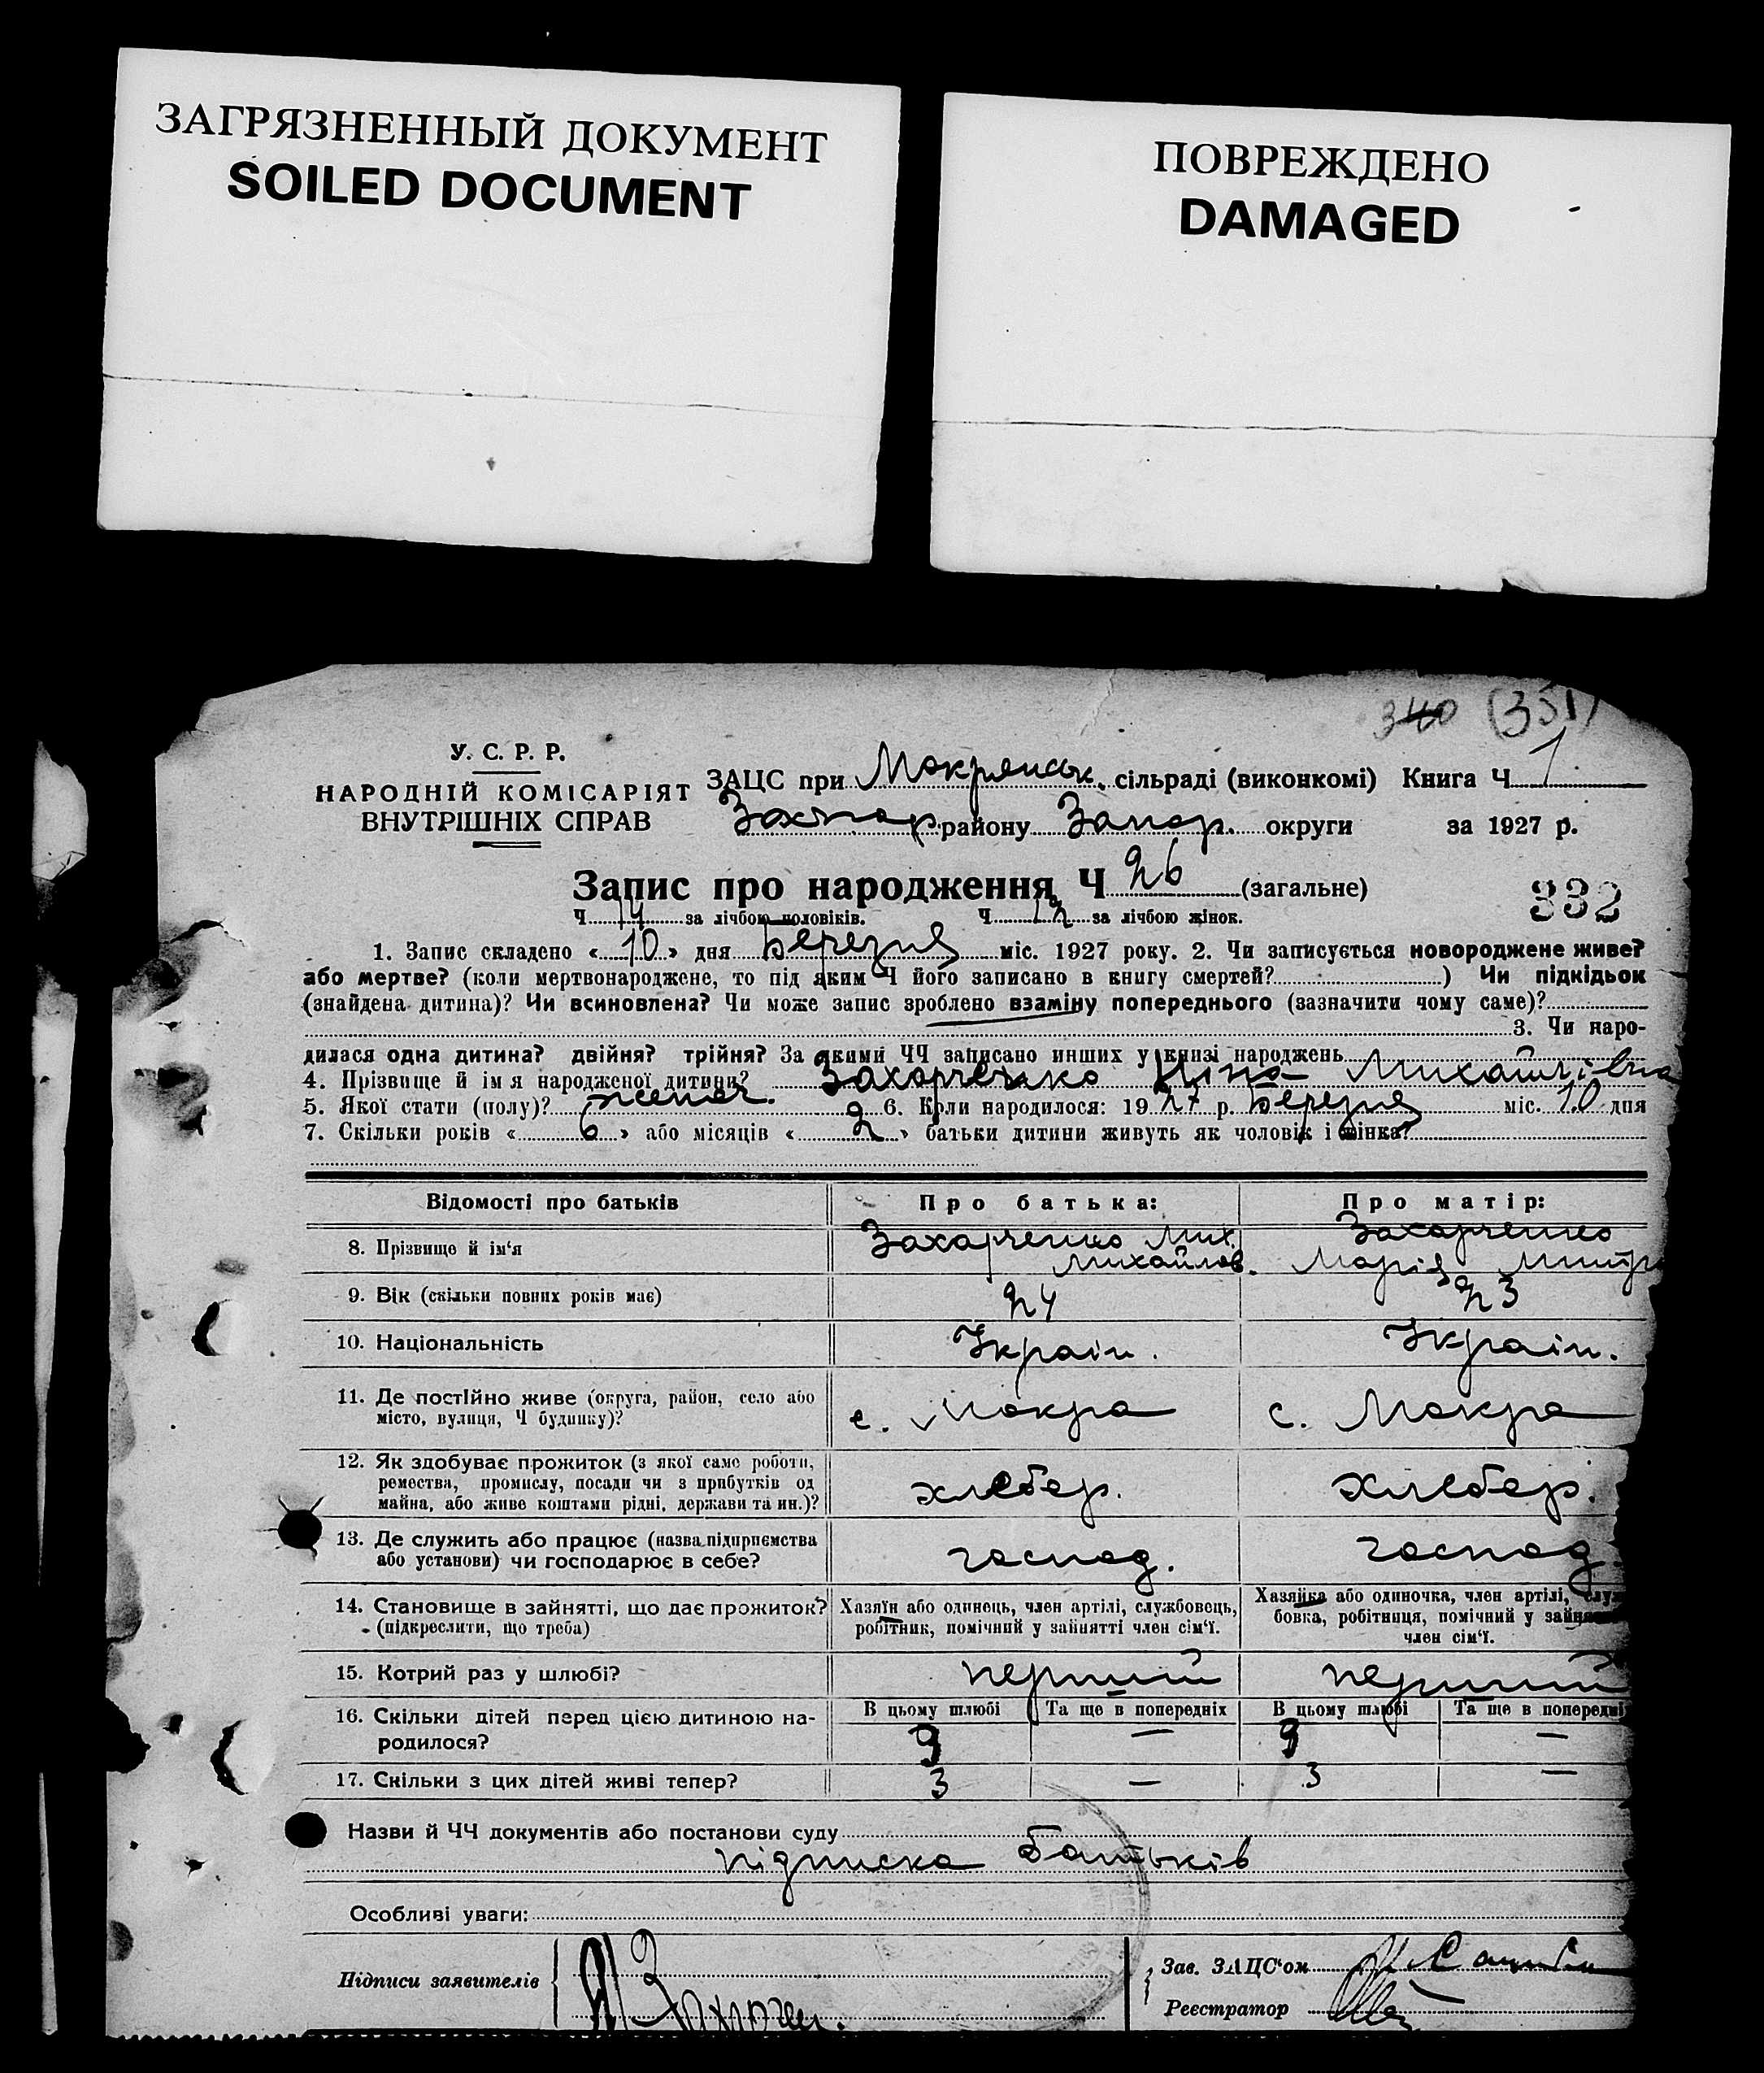 ЗАГРЯЗНЕННЫЙ ДОКУМЕНТ
SOILED DOCUMENT
ПОВРЕЖДЕНО
DAMAGED
340 (351)
У. С. Р. Р.
НАРОДНІЙ КОМІСАРІЯТ
ВНУТРІШНІХ СПРАВ
ЗАЦС при Мокрянськ. сільраді (виконкомі) Книга Ч 1
району Запор. округи за 1927 р.
Запис про народження Ч 26 (загальне)
332
Ч 14 за лічбою чоловіків. Ч 12 за лічбою жінок.
1. Запис складено « 10 » дня Березня міс. 1927 року. 2. Чи записується новороджене живе?
або мертве? (коли мертвонароджене, то під яким Ч його записано в книгу смертей? ) Чи підкідьок
(знайдена дитина)? Чи всиновлена? Чи може запис зроблено взаміну попереднього (зазначити чому саме)?
3. Чи наро-
дилася одна дитина? двійня? трійня? За якими ЧЧ записано инших у книзі народжень
4. Прізвище й ім я народженої дитини? Захарченко Ніна Михайлівна
5. Якої стати (полу)? жіноч. 6. Коли народилося: 1927 р. Березня міс. 10 дня
7. Скільки років « 6 » або місяців « 2 » батьки дитини живуть як чоловік і жінка?
Відомості про батьків
Про батька:
Про матір:
8. Прізвище й ім‘я
Захарченко Мих.
Михайлов.
Захарченко
Марія
9. Вік (скільки повних років має)
24
23
10. Національність
Україн.
Україн.
11. Де постійно живе (округа, район, село або
місто, вулиця, Ч будинку)?
с. Мокра
с. Мокра
12. Як здобуває прожиток (з якої саме роботи,
ремества, промислу, посади чи з прибутків од
майна, або живе коштами рідні, держави та ин.)?
хлебер.
хлебер.
13. Де служить або працює (назва підприємства
або установи) чи господарює в себе?
господ.
господ.
14. Становище в зайнятті, що дає прожиток?
(підкреслити, що треба)
Хазяїн або одинець, член артілі, службовець,
робітник, помічний у зайнятті член сім‘ї.
Хазяйка або одиночка, член артілі, служ-
бовка, робітниця, помічний у зайнятті
член сім‘ї.
15. Котрий раз у шлюбі?
перший
перший
16. Скільки дітей перед цією дитиною на-
родилося?
В цьому шлюбі
Та ще в попередніх
В цьому шлюбі
Та ще в попередніх
3
—
3
—
17. Скільки з цих дітей живі тепер?
3
—
3
—
Назви й ЧЧ документів або постанови суду
підписка батьків
Особливі уваги:
Підписи заявителів
Зав. ЗАЦС‘ом
Реєстратор